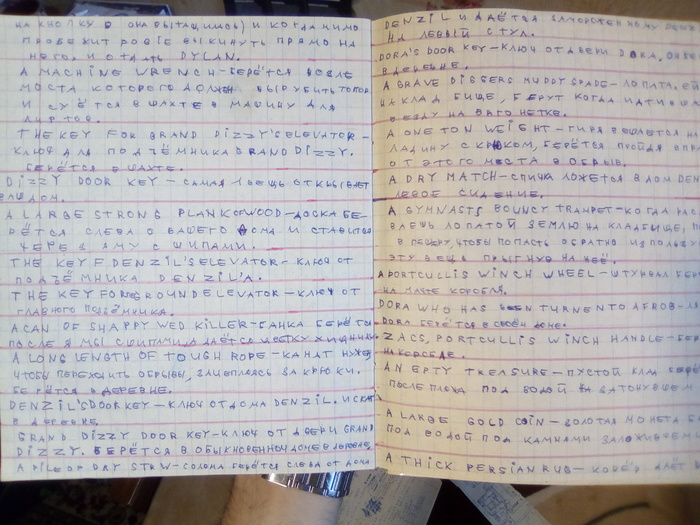 НА КНОПКУ В ОНА ВЫТАЩИМОСЬ) И КОГДА МИМО
ПРОБЕЖИТ ВЫКИНУТЬ ПРЯМО НА
НЕГО И ОТДАТЬ DYLAN.
A MACHINE WRENCH – БЕРЁТСЯ ВОЗЛЕ
МОСТА КОТОРОГО ДОЛЖЕН ВЫРУБИТЬ ТОПОР
И СУЁТСЯ В ШАХТЕ В МАШИНУ ДЛЯ
ЛИФТОВ.
THE KEY FOR GRAND DIZZY'S ELEVATOR –
КЛЮЧ ДЛЯ ПОДЪЁМНИКА GRAND DIZZY.
БЕРЁТСЯ В ШАХТЕ.
DIZZY DOOR KEY – САМАЯ 1 ВЕЩЬ ОТКРЫВАЕТ
ВАШ ДОМ.
A LARGE STRONG PLANK OF WOOD – ДОСКА БЕ-
РЁТСЯ СЛЕВА О ВАШЕГО ДОМА И СТАВИТСЯ
ЧЕРЕЗ ЯМУ С ШИПАМИ.
THE KEY F DENZIL'S ELEVATOR – КЛЮЧ ОТ
ПОДЪЁМНИКА DENZIL'А.
THE KEY FOR GROUND ELEVATOR – КЛЮЧ ОТ
ГЛАВНОГО ПОДЪЁМНИКА.
A CAN OF SHAPPY WED KILLER – БАНКА БЕРЁТСЯ
ПОСЛЕ ЯМЫ С ШИПАМИ ДАЁТСЯ ЦВЕТКУ ХИЩНИКУ
A LONG LENGTH OF TOUGH ROPE – КАНАТ НУЖЕН
ЧТОБЫ ПЕРЕХОДИТЬ ОБРЫВЫ, ЗАЦЕПЛЯЯСЬ ЗА КРЮКИ.
БЕРЁТСЯ В ДЕРЕВНЕ.
DENZIL'S DOOR KEY – КЛЮЧ ОТ ДОМА DENZIL. ИСКАТЬ
В ДЕРЕВНЕ
GRAND DIZZY DOOR KEY – КЛЮЧ ОТ ДВЕРИ GRAND
DIZZY. БЕРЁТСЯ В ОБЫКНОВЕННОМ ДОМЕ В ДЕРЕВНЕ.
A PILE OF DRY STRW – СОЛОМА БЕРЁТСЯ СЛЕВА ОТ ДОМА
DENZIL И ДАЁТСЯ ЗАМОРОЖЕННОМУ
НА ЛЕВЫЙ СТУЛ.
DORA'S DOOR KEY – КЛЮЧ ОТ ДВЕРИ DORA, ОН
В ДЕРЕВНЕ.
A GRAVE DIGGERS MUDDY SPADE – ЛОПАТА, ЕЙ
НА КЛАДБИЩЕ, БЕРУТ КОГДА ИДТИ В Ш
ЕЗДУ НА ВАГОНЕТКЕ.
A ONE TON WEIGHT – ГИРЯ ВЕШАЕТСЯ НА
С КРЮКОМ, БЕРЁТСЯ ПРОЙДЯ ВПР
ОТ ЭТОГО МЕСТА В ОБРЫВ.
A DRY MATCH – СПИЧКА ЛОЖЕТСЯ В ДОМ DEN
ЛЕВОЕ СИДЕНИЕ.
A GYMNASTS BOUNCY TRAMPET – КОГДА РАС
ЛОПАТОЙ ЗЕМЛЮ НА КЛАДБИЩЕ, ПО
В ПЕЩЕРУ, ЧТОБЫ ПОПАСТЬ ОБРАТНО ИСПОЛЬЗУ
ЭТУ ВЕЩЬ ПРЫГНУВ НА НЕЁ.
A PORTCULLIS WINCH WHEEL – ШТУРВАЛ БЕР
НА МАЧТЕ КОРАБЛЯ.
DORA WHO HAS BEEN TURNEN TO A FROG – ЛЯ
DORA БЕРЁТСЯ В СВОЁМ ДОМЕ.
ZACS, PORTCULLIS WINCH HANDLE – БЕР
НА КОРАБЛЕ.
AN EPTY TREASURE – ПУСТОЙ КЛАД БЕРЁ
ПОСЛЕ ПОД ВОДОЙ ЗА ЗАТОНУВШЕМ
A LARGE GOLD COIN – ЗОЛОТАЯ МОНЕТА Б
ПОД ВОДОЙ ПОД КАМНЯМИ
A THICK PERSIAN RUG – КОВЁР ДАЁТ